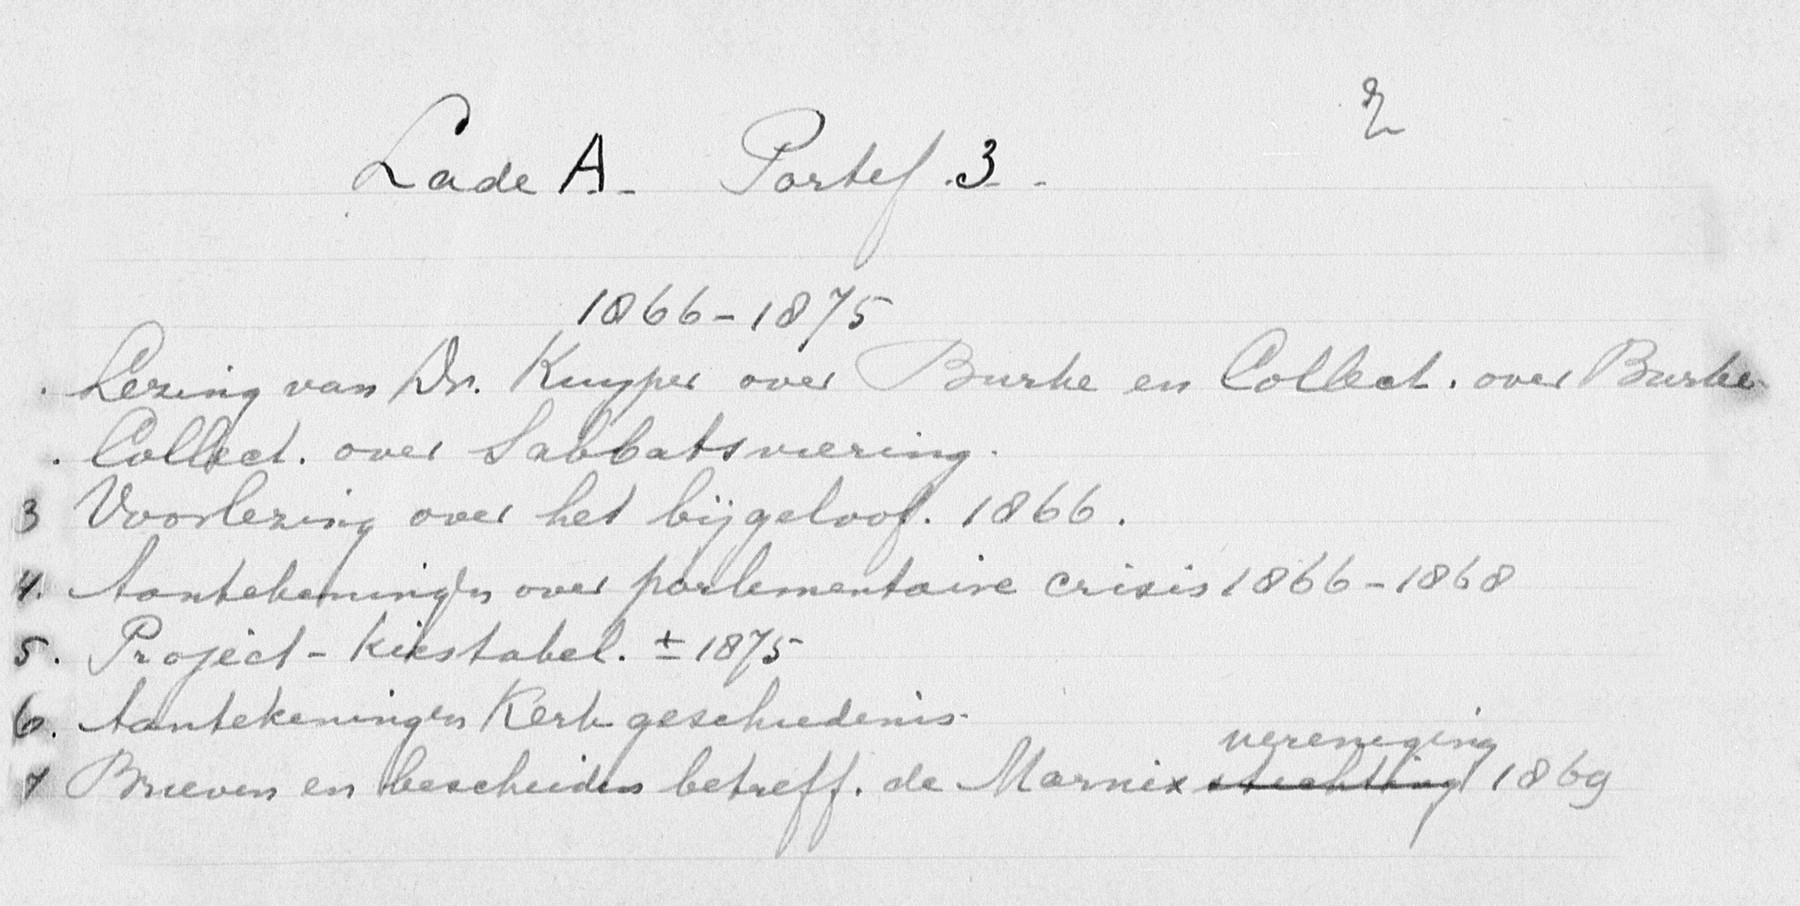 2
Lade A. Portef. 3.
1866-1875
. Lezing van Dr. Kuyper over Burke en Collect. over Burke.
. Collect. over Sabbatsviering.
3 Voorlezing over het bijgeloof. 1866.
4. Aantekeningen over parlementaire crisis 1866-1868
5. Project-Kiestabel. ± 1875
6. Aantekeningen Kerkgeschiedenis.
vereniging
7 Brieven en bescheiden betreff. de Marnix stichting 1869